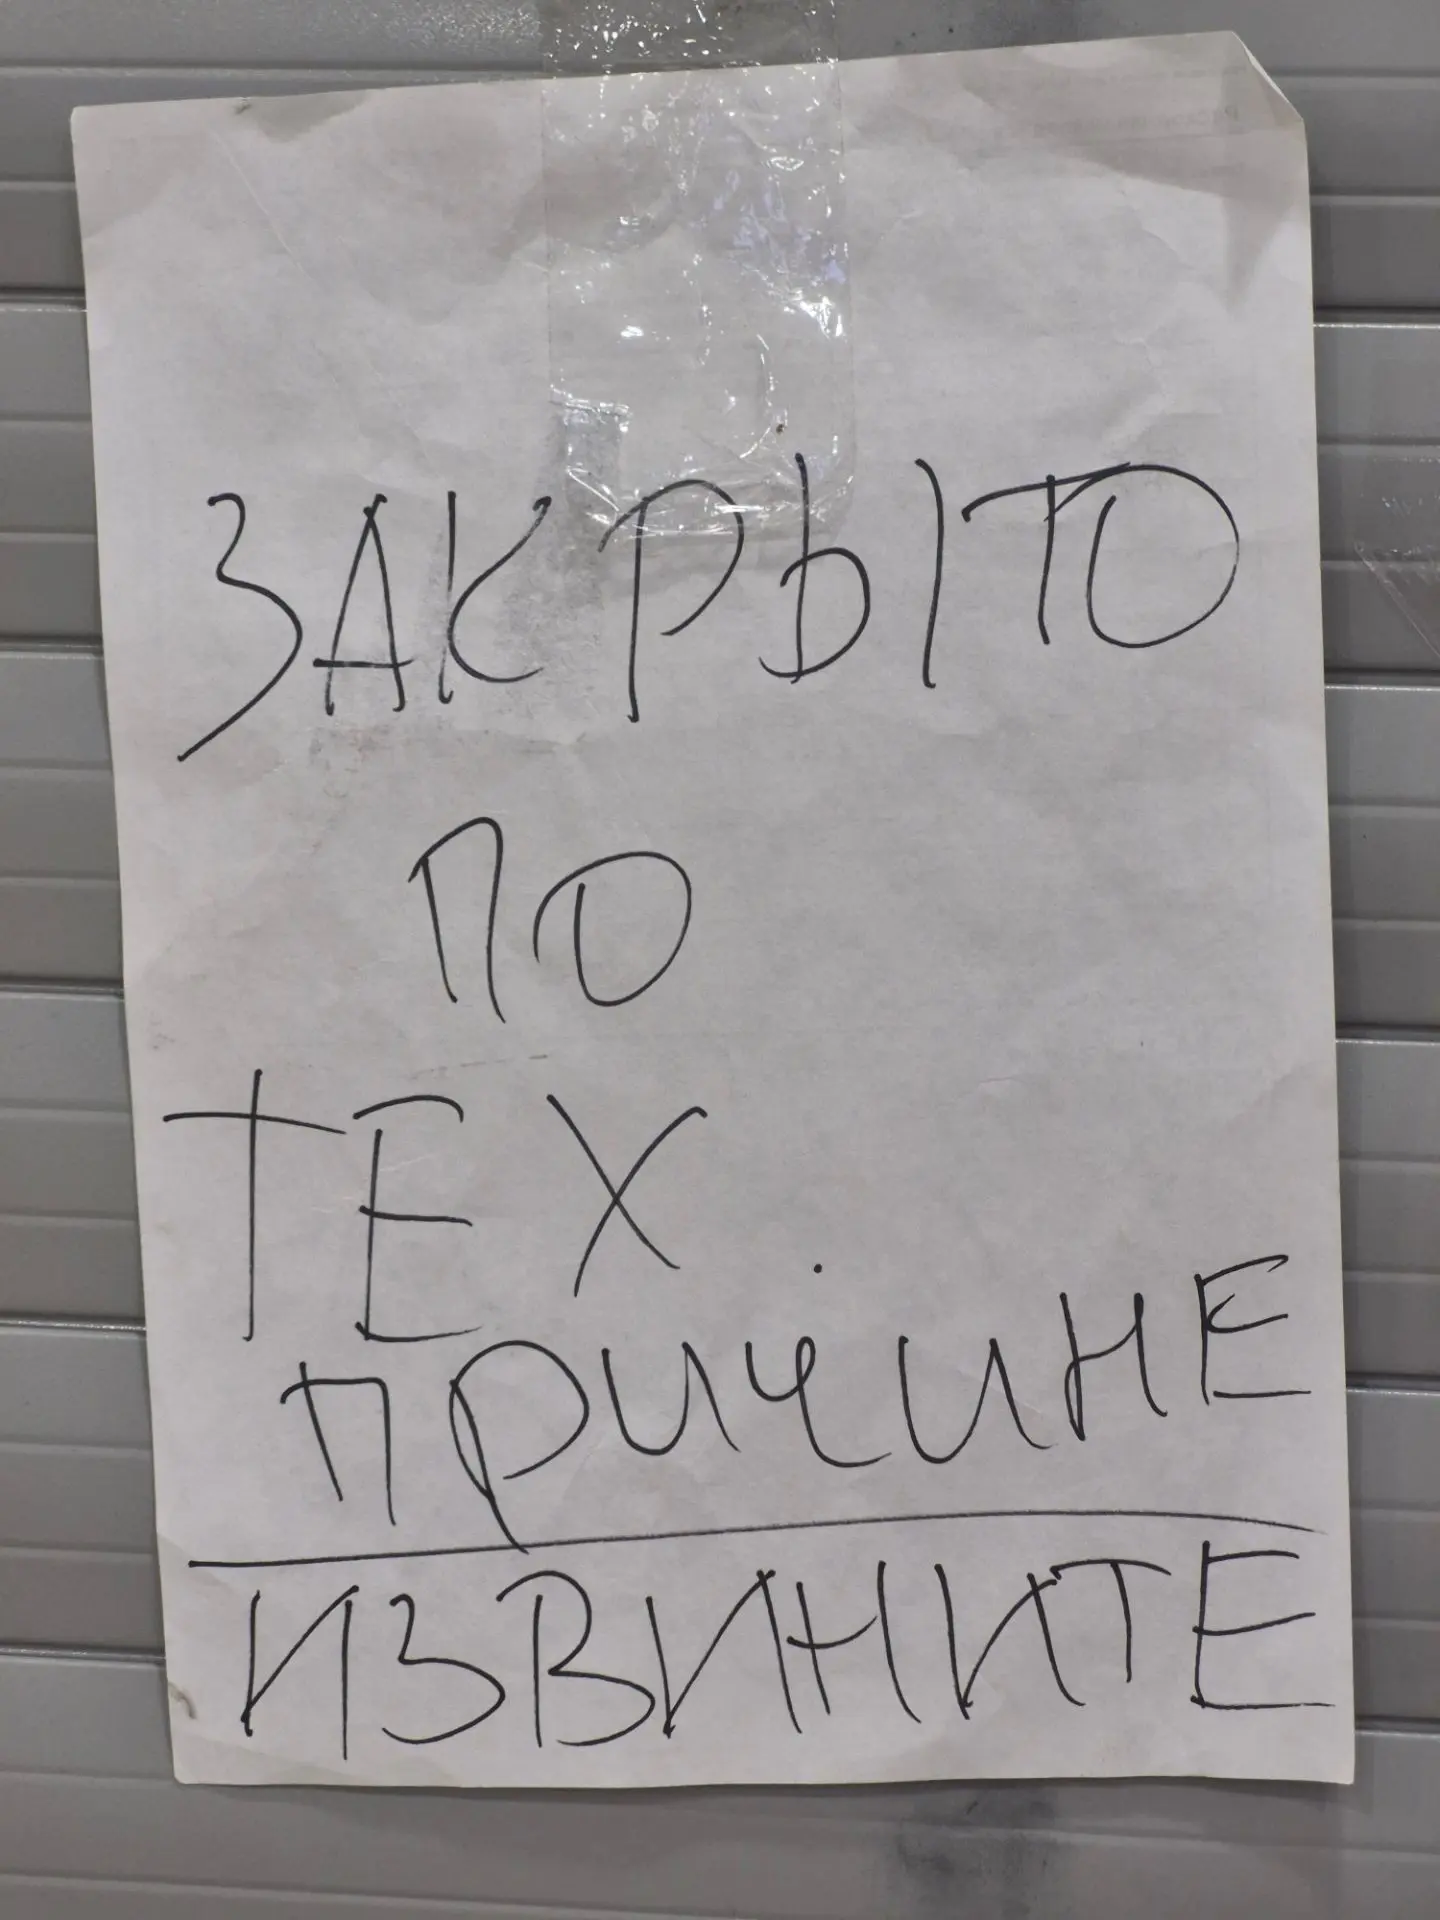 ЗАКРЫТО
ПО
ТЕХ
ПРИЧИНЕ
ИЗВИНИТЕ